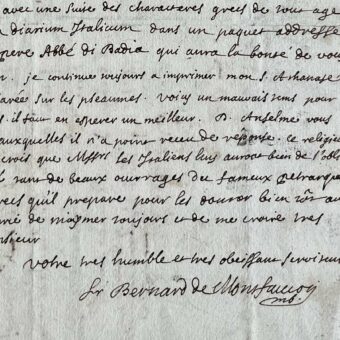 avec une suite des characteres grecs de tout age
diarium Italicum dans un paquet addressé
pere Abbé di Badia qui aura la bonté de vou
je continue toujours a imprimer mon S. Athanase
sur les pseaumes. Voicy un mauvais tems pour
il faut en esperer un meilleur. D. Anselme vous
auxquelles il n'a point receu de réponse. ce religieu
crois que Messrs les Italiens luy auront bien de l'obl
de beaux ouvrages du fameux petrarque
qu'il prepare pour les donner bien tôt au
de m'aymer toujours et de me croire tres
sieur
Votre tres humble et tres obeissant serviteur
fr Bernard de Montfaucon
mb.